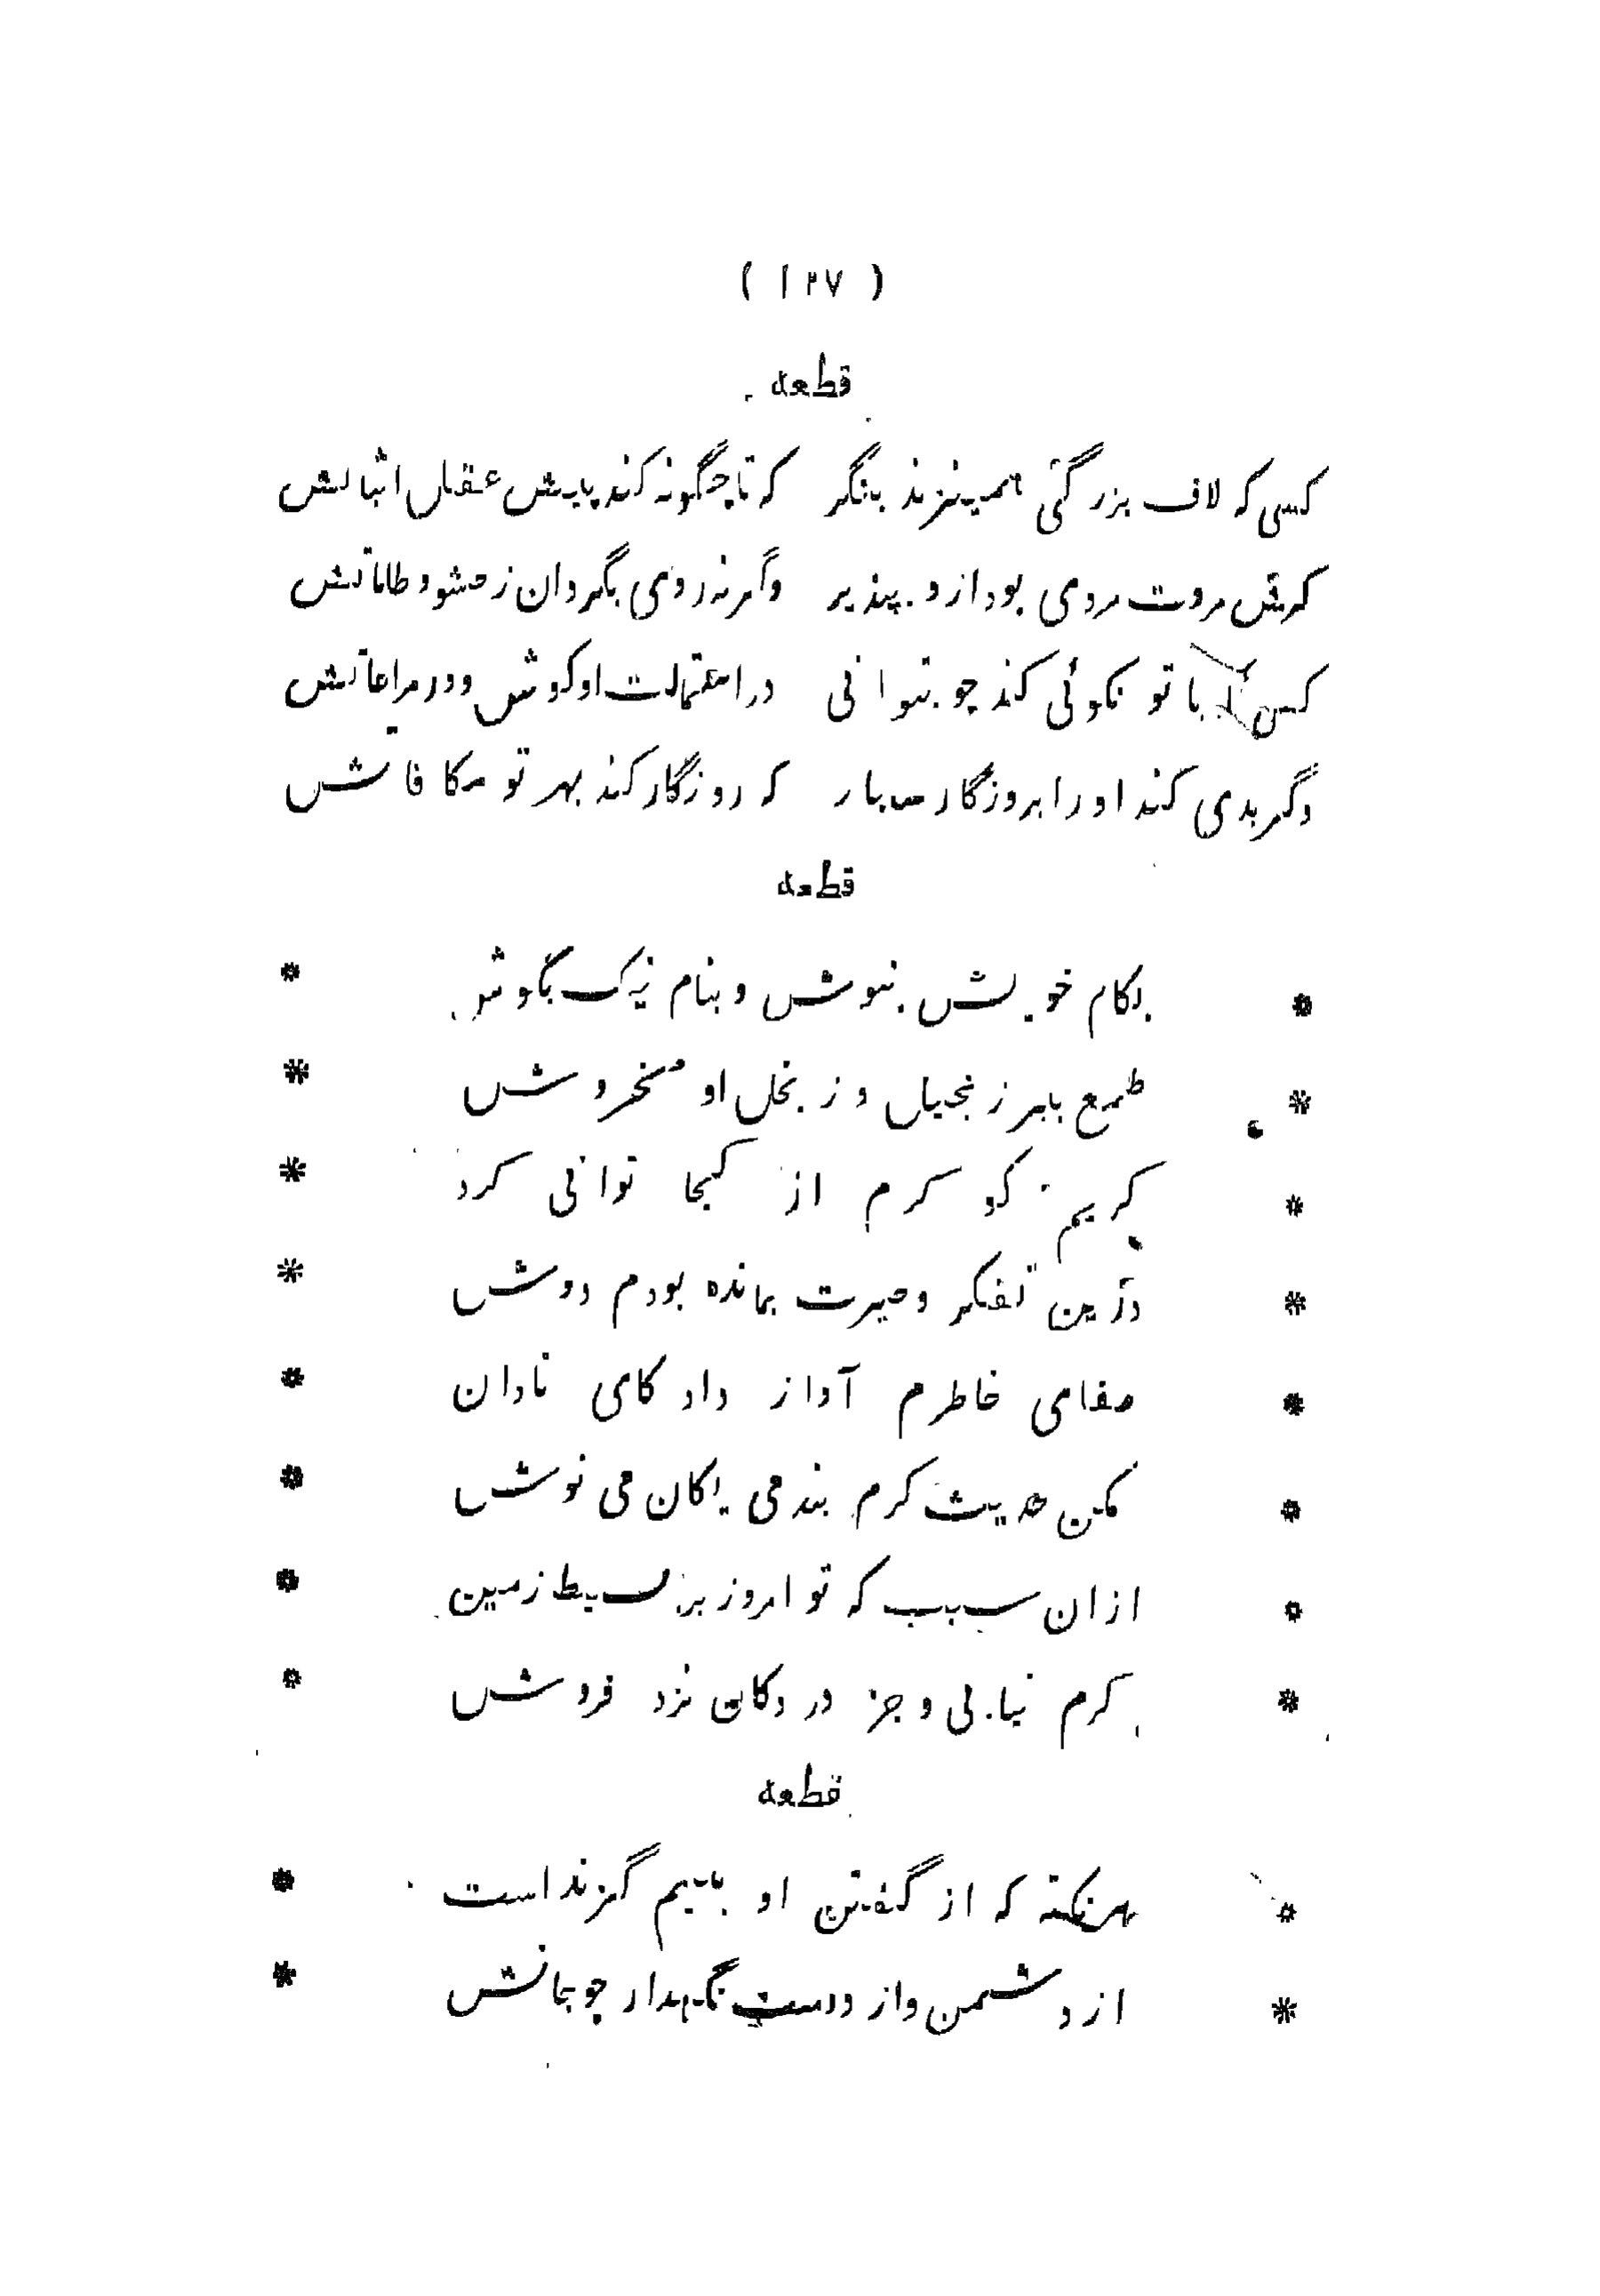 ( ۱۲۷ )
قطعه
کسی که لاف بزرگی همیزند بنگر که تا چگونه کند پایش عقل اثباتش
گرش مروت مردی بود ازو بپذیر وگرنه روی بگردان ز حشو و طاماتش
کس با تو نکوئی کند چو بتوانی در استمالت او کوش و در مراعاتش
وگر بدی کند او را بروزگار سپار که روزگار کند بهر تو مکافاتش
قطعه
* بکام خویش بنوش و بنام نیک بکوش *
* طمع ببر ز بخیل و ز بخل او مخروش *
* کریم کو کرم از کجا توانی کرد *
* درین تفکر و حیرت بمانده بودم دوش *
* صفای خاطرم آواز داد کای نادان *
* مکن حدیث کرم پندمی می نوش *
* ازان سبب که تو امروز بر بسیط زمین *
* کرم نیابی و جز در دکان نرد فروش *
قطعه
* هر نکته که از گفتن او بیم گزند است *
* از دشمن و از دوست نگهدار چو جانش *